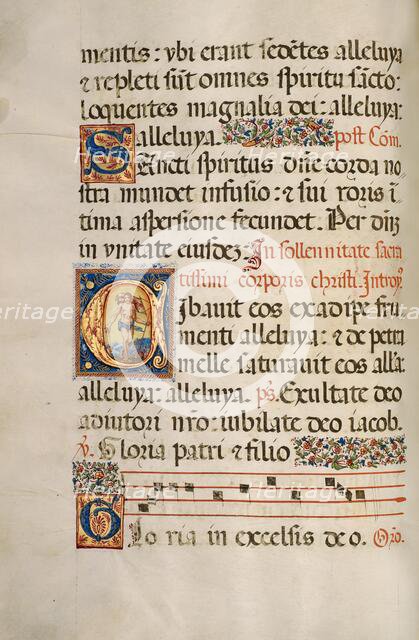 mentis: ybi erant sedētes alleluya
⁊ repleti sūt omnes spiritu sācto:
loquentes magnalia dei: alleluya:
alleluya. post Cōm̄.
Sancti spiritus dn̄e corda no
stra mundet infusio: ⁊ sui roris ī
tima aspersione fecundet. Per dn̄ʒ
in vnitate eiusdeʒ. In sollennitate sacra
tissimi corporis christi. Introyᵗ
Cibauit eos exadipe fru
menti alleluya: ⁊ de petra
melle saturauit eos alla:
alleluya: alleluya. ps̄. Exultate deo
adiutori nr̄o: iubilate deo iacob.
V̄. Gloria patri ⁊ filio
Glo ria in excelsis de o. Oro̅.
Heritage Images